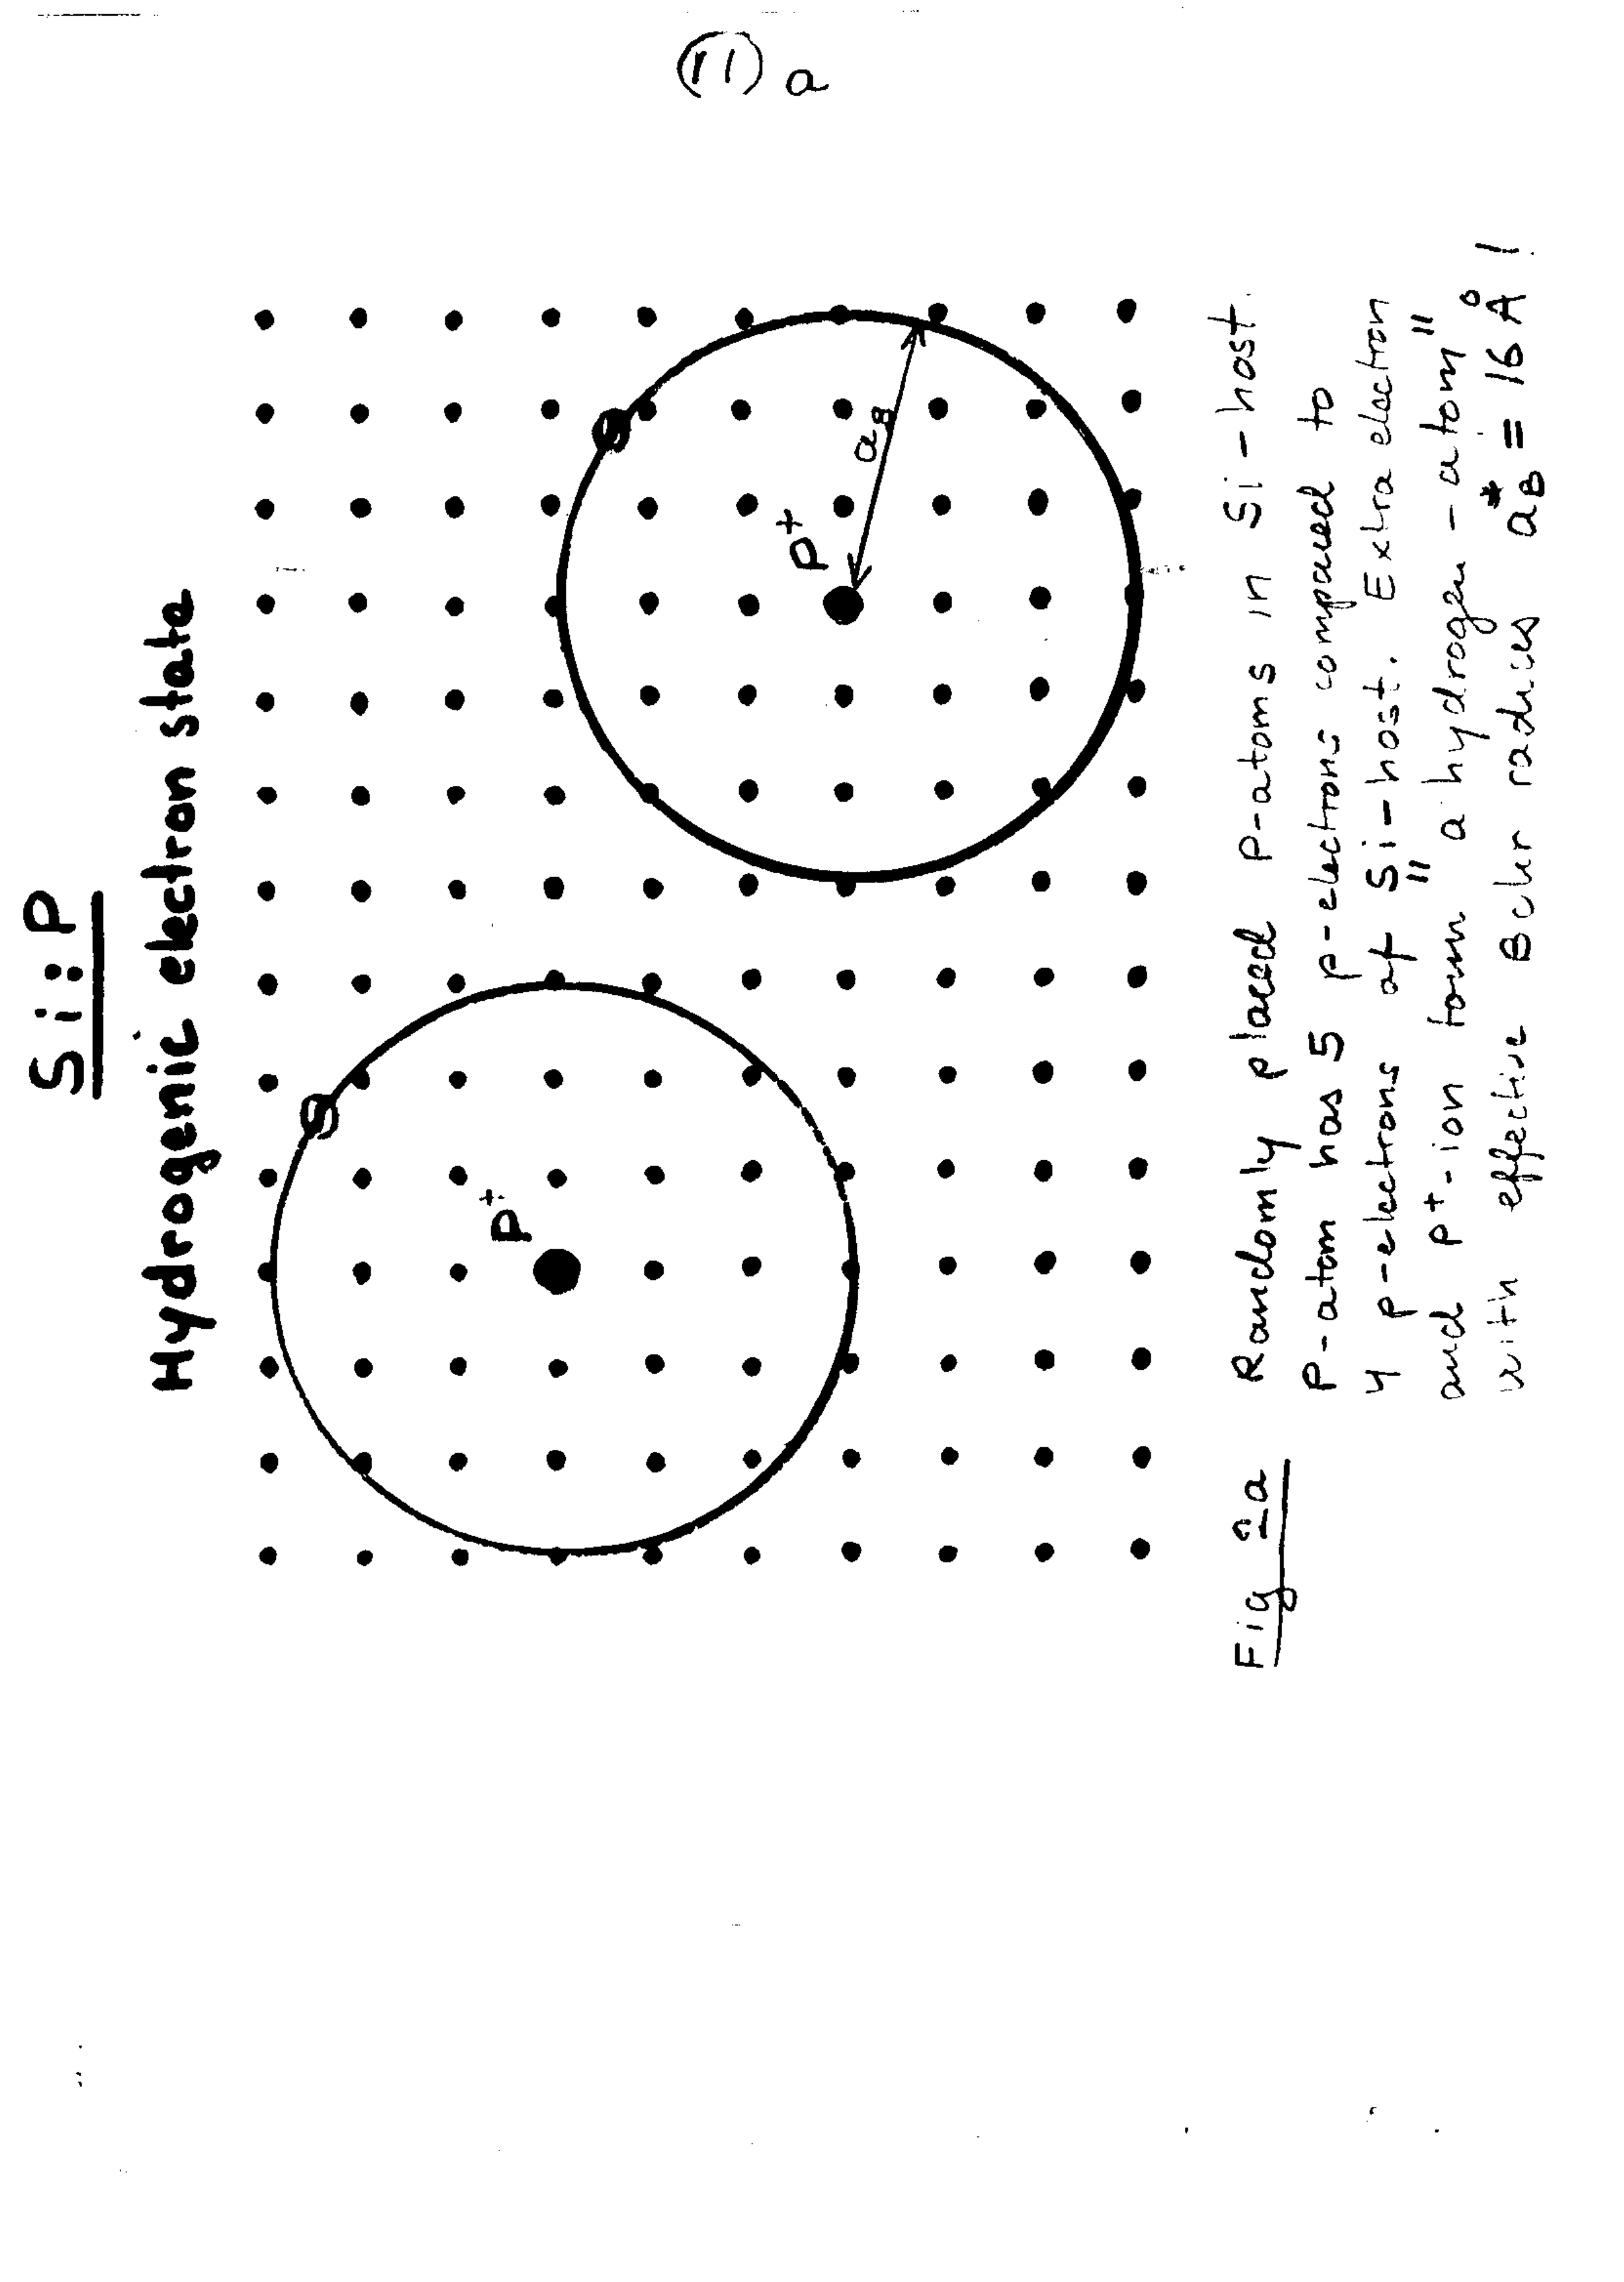 (11) a
Si:P
Hydrogenic electron state
P⁺
P⁺
a_B
Fig 2a Randomly placed P-atoms in Si-host.
P-atom has 5 p-electrons compared to
4 p-electrons of Si-host. Extra electron
and P⁺-ion form a "hydrogen-atom"
with effective Bohr radius a_B* = 16 Å !